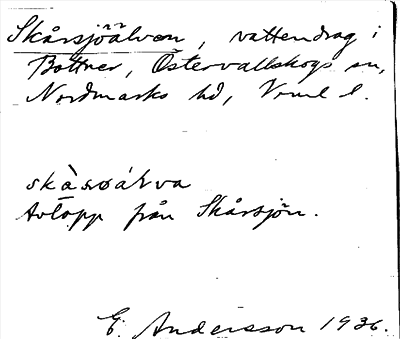 Skårsjöälven, vattendrag i
Bottner, Östervallskogs sn,
Nordmarks hd, Vrml l.
skàsøálva
Avlopp från Skårsjön.
E. Andersson 1936.